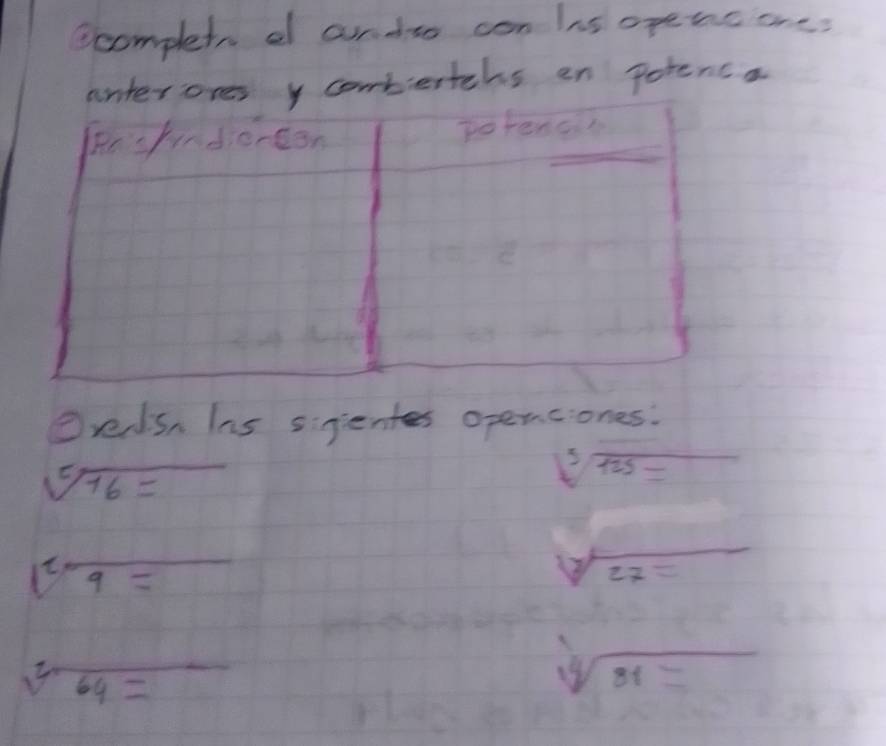 completa el cuadro con las operaciones
anteriores y combiertelas en potencia
potencia
realisa las sigientes operaciones:
⁵√16 = ³√125 =
²√9 = ³√27 =
²√64 = ⁴√81 =